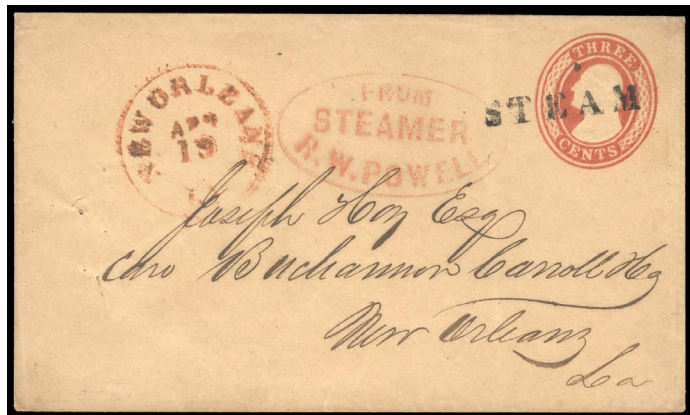 NEW ORLEANS
APR
19
La
FROM
STEAMER
R.W.POWELL
THREE
CENTS
STEAM
Joseph Hoy Esq
Care Buchannon Carroll & Co
New Orleans
La